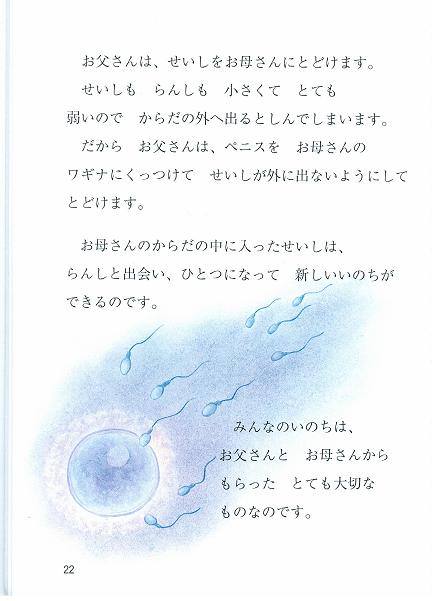 お父さんは、せいしをお母さんにとどけます。
せいしも　らんしも　小さくて　とても
弱いので　からだの外へ出るとしんでしまいます。
だから　お父さんは、ペニスを　お母さんの
ワギナにくっつけて　せいしが外に出ないようにして
とどけます。
お母さんのからだの中に入ったせいしは、
らんしと出会い、ひとつになって　新しいいのちが
できるのです。
みんなのいのちは、
お父さんと　お母さんから
もらった　とても大切な
ものなのです。
22